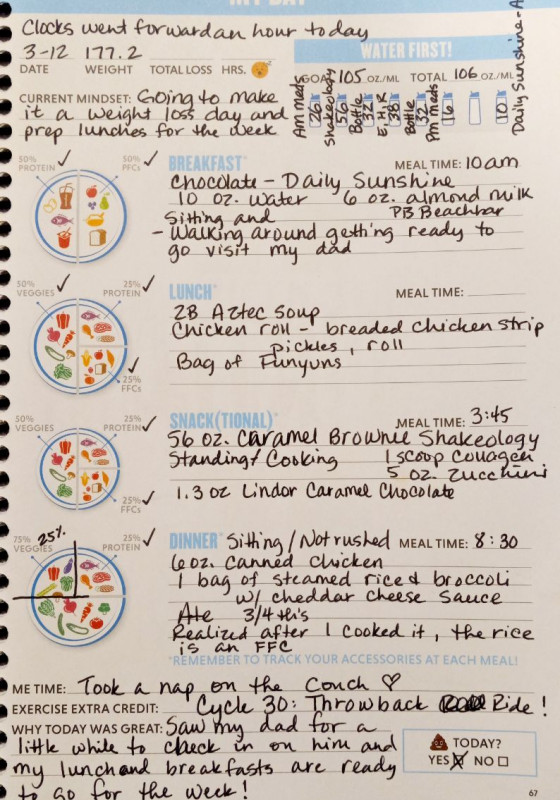 MY DAY
Clocks went forward an hour today
3-12 177.2
DATE WEIGHT TOTAL LOSS HRS.
WATER FIRST!
GOAL 105 OZ./ML TOTAL 106 OZ./ML
Am meds 26 Shakeology 56 Bottle 32 E, H, R 38 Bottle 32 Pm meds 16 10 Daily Sunshine-A
CURRENT MINDSET: Going to make
it a weight loss day and
prep lunches for the week
50% PROTEIN ✓ 50% PFCs ✓
BREAKFAST* MEAL TIME: 10am
Chocolate - Daily Sunshine
10 oz. water 6 oz. almond milk
Sitting and PB Beachbar
- Walking around getting ready to
go visit my dad
50% VEGGIES ✓ 25% PROTEIN ✓
25% FFCs ✓
LUNCH* MEAL TIME:
2B Aztec Soup
Chicken roll - breaded chicken strip
pickles, roll
Bag of Funyuns
50% VEGGIES ✓ 25% PROTEIN ✓
25% FFCs ✓
SNACK(TIONAL)* MEAL TIME: 3:45
56 oz. Caramel Brownie Shakeology
Standing/ Cooking 1 scoop collagen
5 oz. Zucchini
1.3 oz Lindor Caramel Chocolate
75% VEGGIES 25% 25% PROTEIN ✓
DINNER* Sitting / Not rushed MEAL TIME: 8:30
6 oz. Canned Chicken
1 bag of steamed rice & broccoli
w/ cheddar cheese sauce
Ate 3/4th's
Realized after I cooked it, the rice
is an FFC
*REMEMBER TO TRACK YOUR ACCESSORIES AT EACH MEAL!
ME TIME: Took a nap on the couch ♡
EXERCISE EXTRA CREDIT: Cycle 30: Throwback Ride!
WHY TODAY WAS GREAT: Saw my dad for a
little while to check in on him and
my lunch and breakfasts are ready
to go for the week!
TODAY?
YES ☒ NO ☐
67